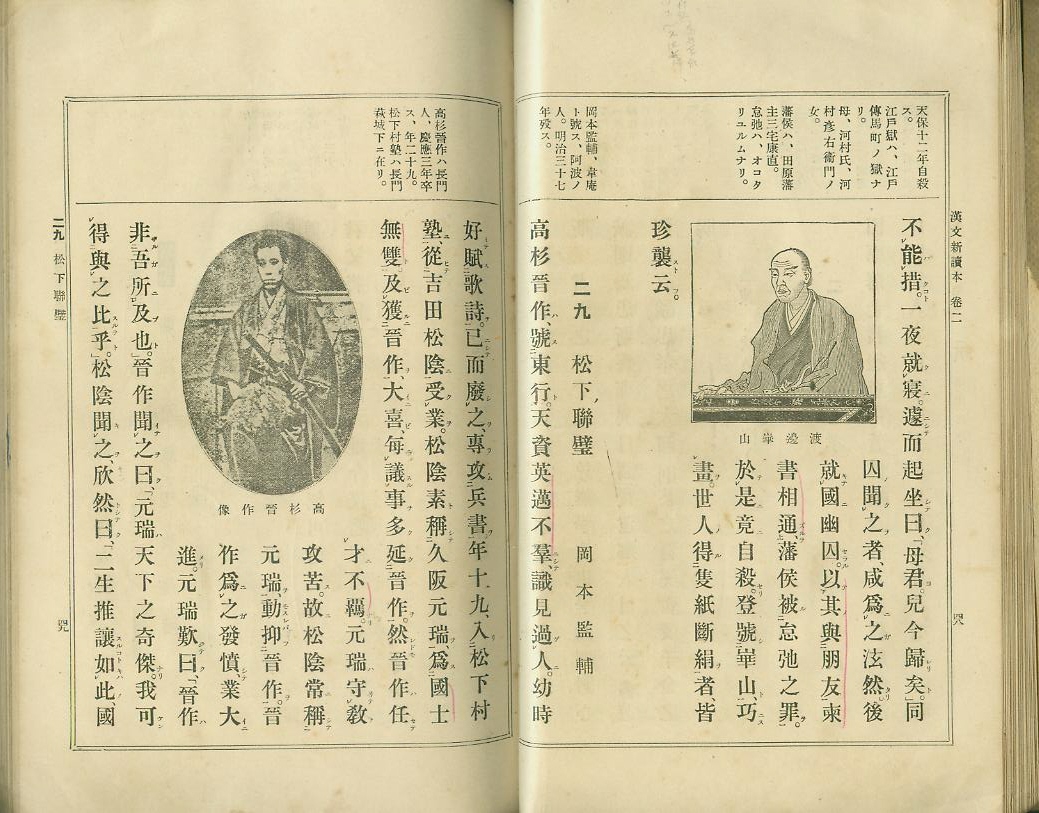 漢文新讀本 卷二
天保十二年自殺
ス。
江戸獄ハ、江戸
傳馬町ノ獄ナ
リ。
母、河村氏、河
村彥右衞門ノ
女。
藩侯ハ、田原藩
主三宅康直。
怠弛ハ、オコタ
リユルムナリ。
岡本監輔、韋庵
ト號ス、阿波ノ
人。明治三十七
年歿ス。
不能措。一夜就寢。遽而起坐曰、「母君。兒今歸矣。」同
囚聞之者、咸爲之泫然。後
就國幽囚。以其與朋友柬
書相通、藩侯被怠弛之罪。
於是竟自殺。登號崋山、巧
畫。世人得隻紙斷絹者皆
珍襲云。
渡邊崋山
二九 松下聯璧 岡本監輔
高杉晉作、號東行。天資英邁不羣、識見過人。幼時
高杉晉作ハ長門
人、慶應三年卒
ス、年二十九。
松下村塾ハ長門
萩城下ニ在リ。
好賦歌詩。已而廢之、專攻兵書。年十九、入松下村
塾、從吉田松陰受業。松陰素稱久阪元瑞、爲國士
無雙。及獲晉作大喜、每議事多延晉作。然晉作任
才不羈、元瑞守敎
攻苦。故松陰常稱
元瑞、動抑晉作。晉
作爲之發憤、業大
進。元瑞歎曰、「晉作
高杉晉作像
非吾所及也。」晉作聞之曰、「元瑞天下之奇傑。我可
得與之比乎。」松陰聞之欣然曰、「二生推讓如此、國
二九 松下聯璧